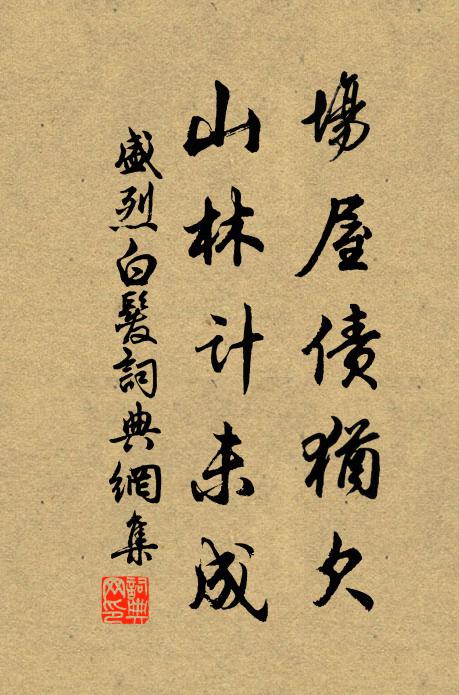 場屋債猶欠
山林計未成
盛烈白髮詞典網集
詞典
网印